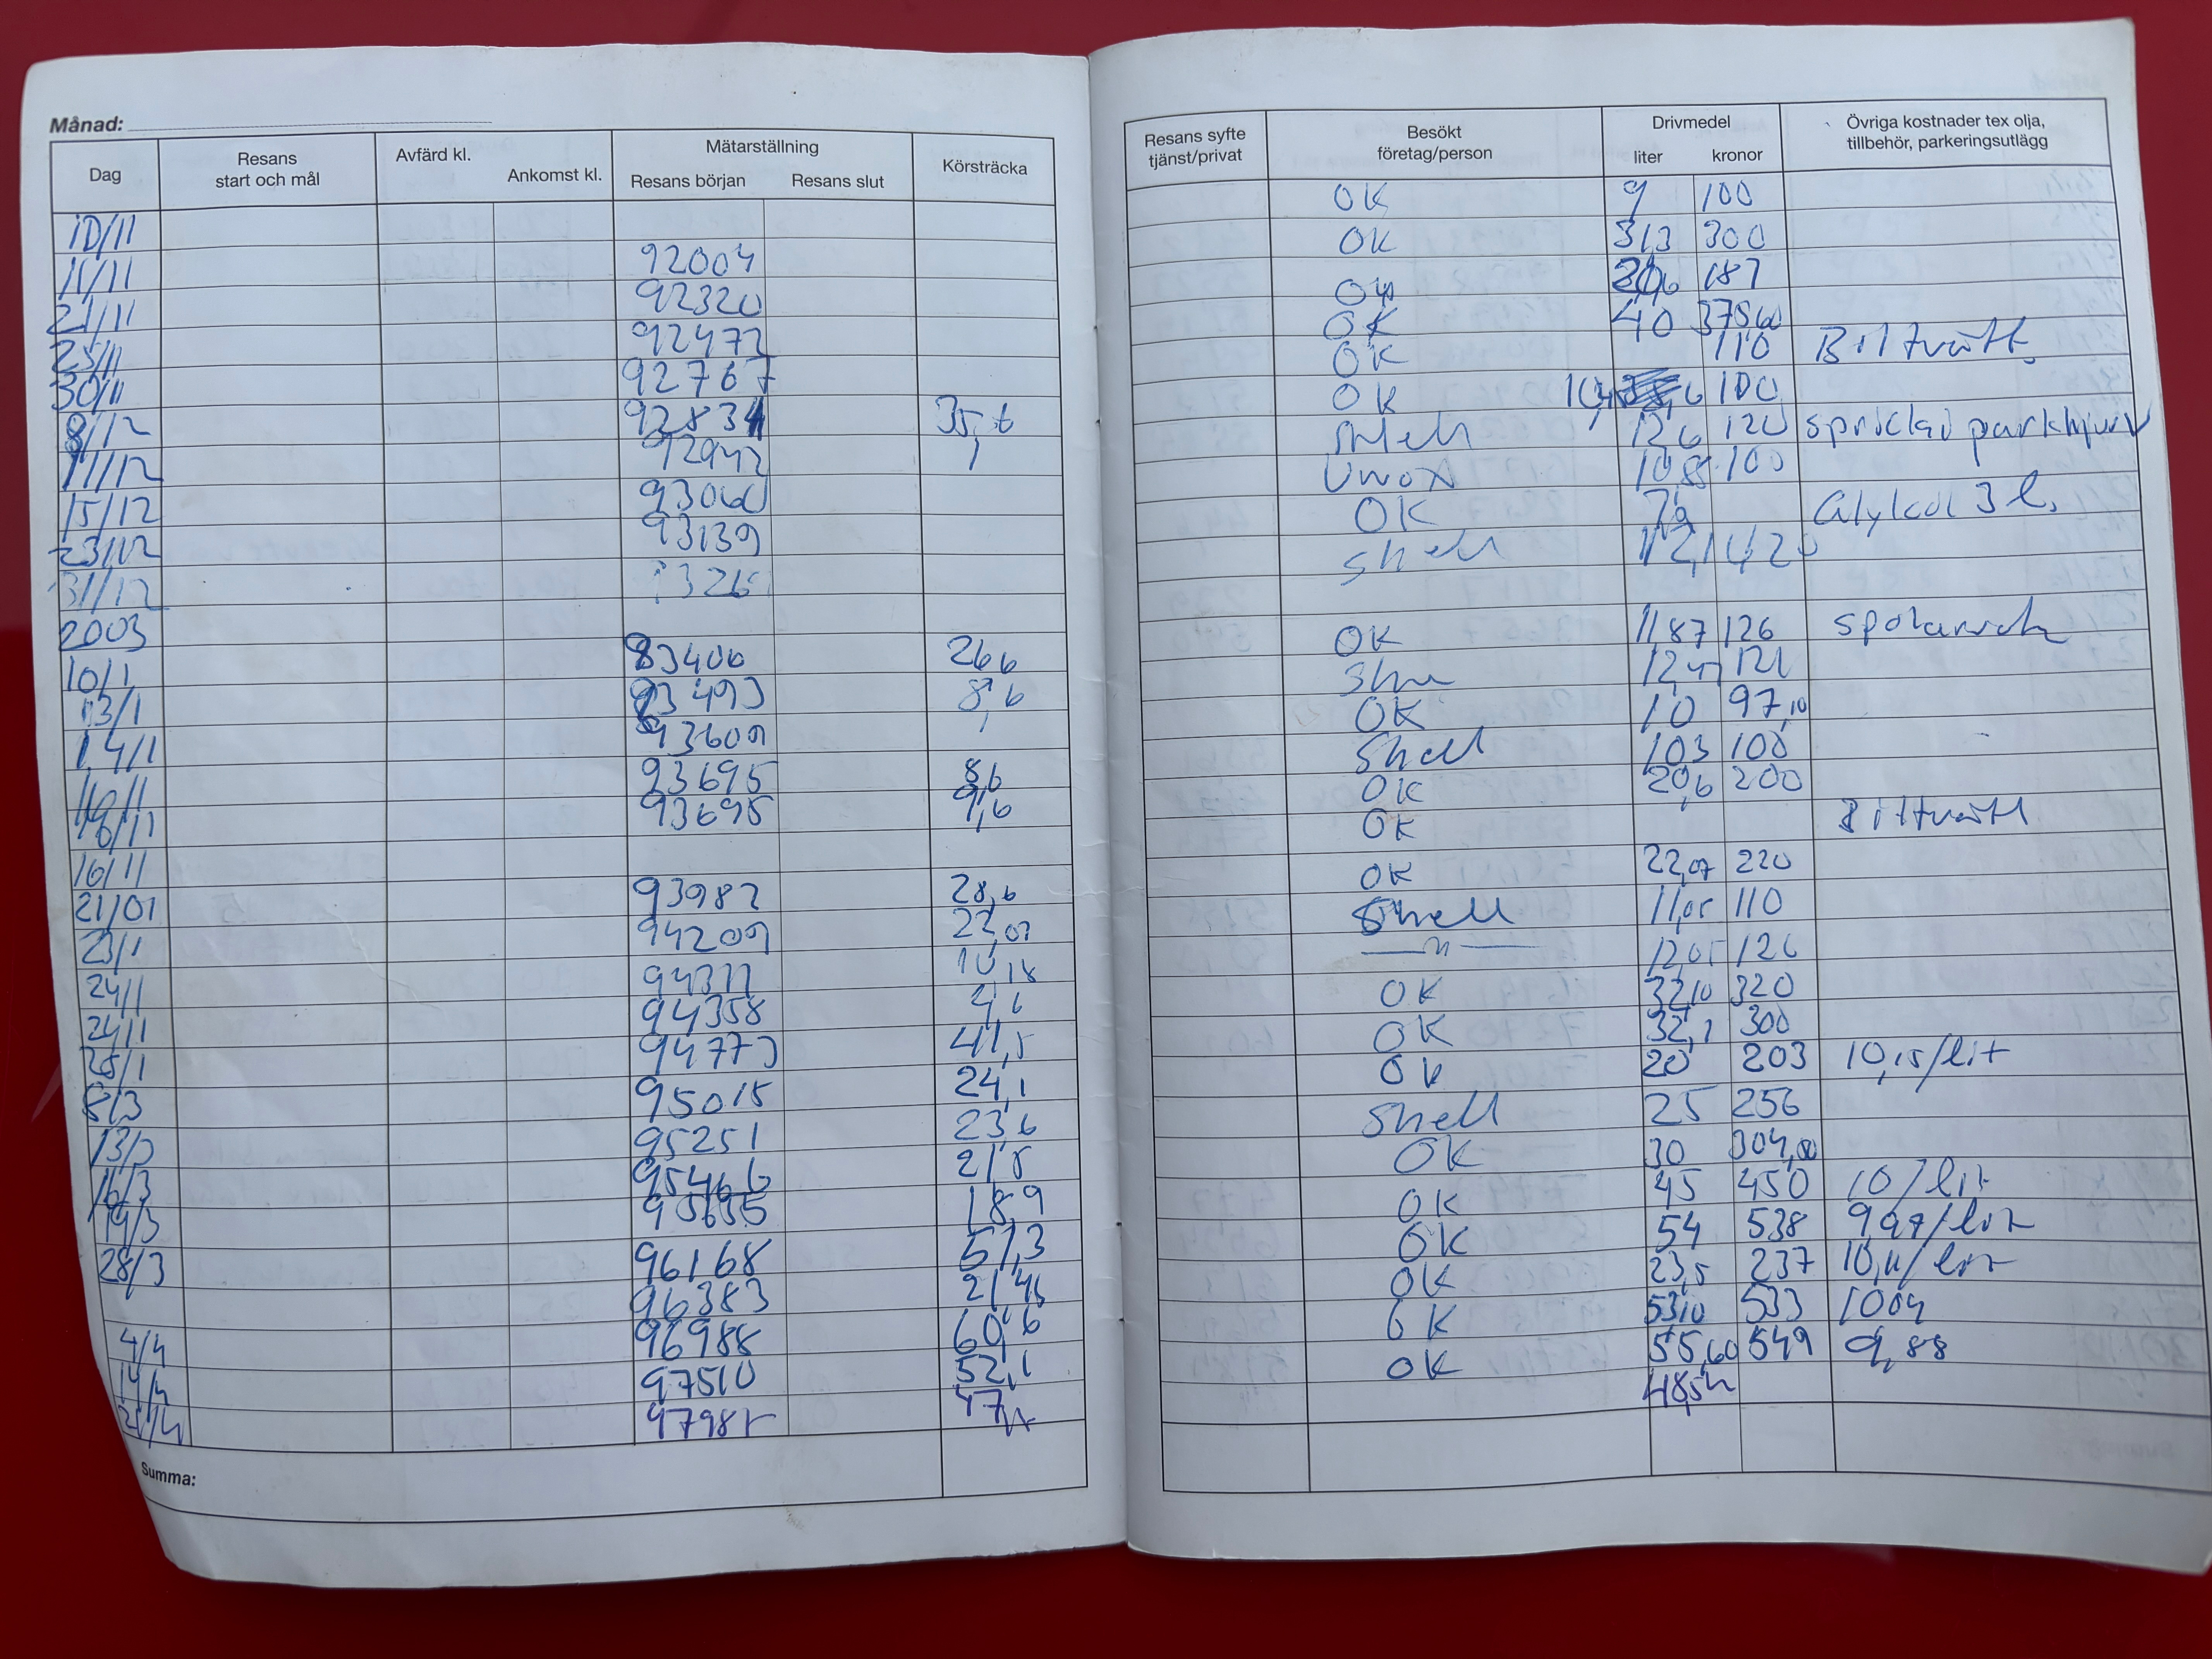 Månad:
Dag Resans start och mål Avfärd kl. Ankomst kl. Mätarställning Resans början Resans slut Körsträcka
10/11
11/11 92004
21/11 92320
25/11 92472
30/11 92767
8/12 92834 35,6
11/12 92942
15/12 93060
23/12 93139
31/12
2003
10/1 93406 26 6
13/1 93493 8,6
14/1 93609
16/1 93695 8,6
16/1 93695 9,6
16/11
21/01 93982 28,6
23/1 94209 22,07
24/1 10,18
24/1 94358 4,6
28/1 94773 41,5
8/3 95015 24,1
13/3 95251 23,6
16/3 95466 21,5
19/3 95655 18,9
28/3 96168 51,3
96383 21,45
4/4 96988 60,6
14/4 97510 52,1
21/4
Summa:
Resans syfte tjänst/privat Besökt företag/person Drivmedel liter kronor Övriga kostnader tex olja, tillbehör, parkeringsutlägg
OK 9 100
OK 31,3 300
187
OK 40 375 60
OK 110 Biltvätt
OK 100
12,6 120
10,8 100
OK Glykol 3 l.
Shell
OK 11 87 126
12,47 121
OK 10 97,10
Shell 103 100
OK 20,6 200
OK Biltvätt
OK 22,07 220
Shell 11,05 110
—"— 12,05 126
OK 32,10 320
OK 32,1 300
OK 20 203 10,15/lit
Shell 25 256
OK 30 304,00
OK 45 450 10/lit
OK 54 538 9,97/lit
OK 23,5 237 10,11/lit
OK 53,10 533 1004
OK 55,60 549 9,88
48,54